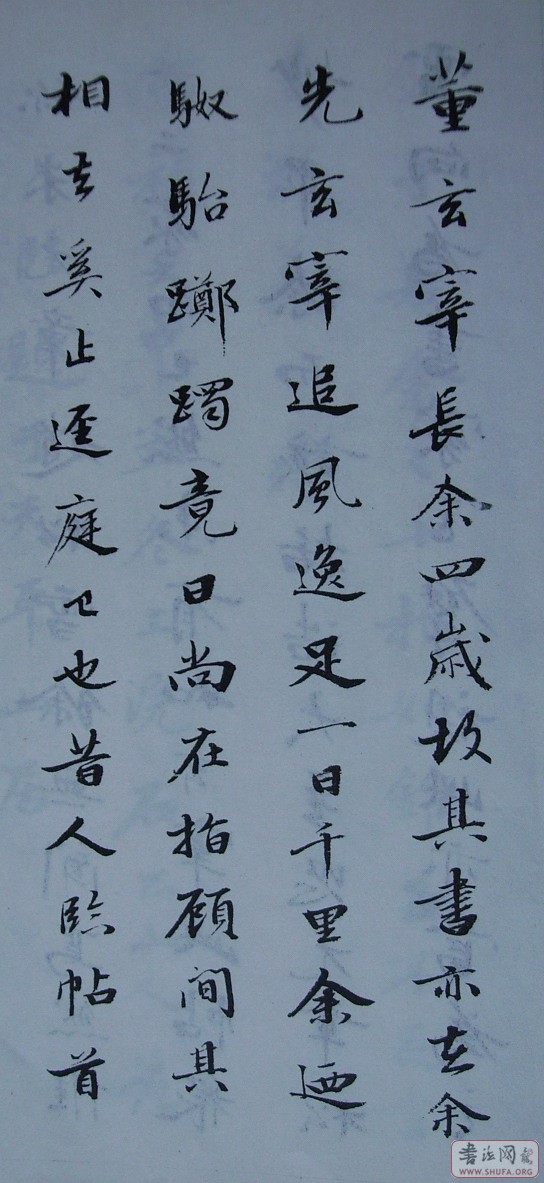 董玄宰長余四歲故其書亦在余
先玄宰追風逸足一日千里余迺
駑駘躑躅竟日尚在指顧間其
相去奚止逕庭已也昔人臨帖首
書法网
WWW.SHUFA.ORG